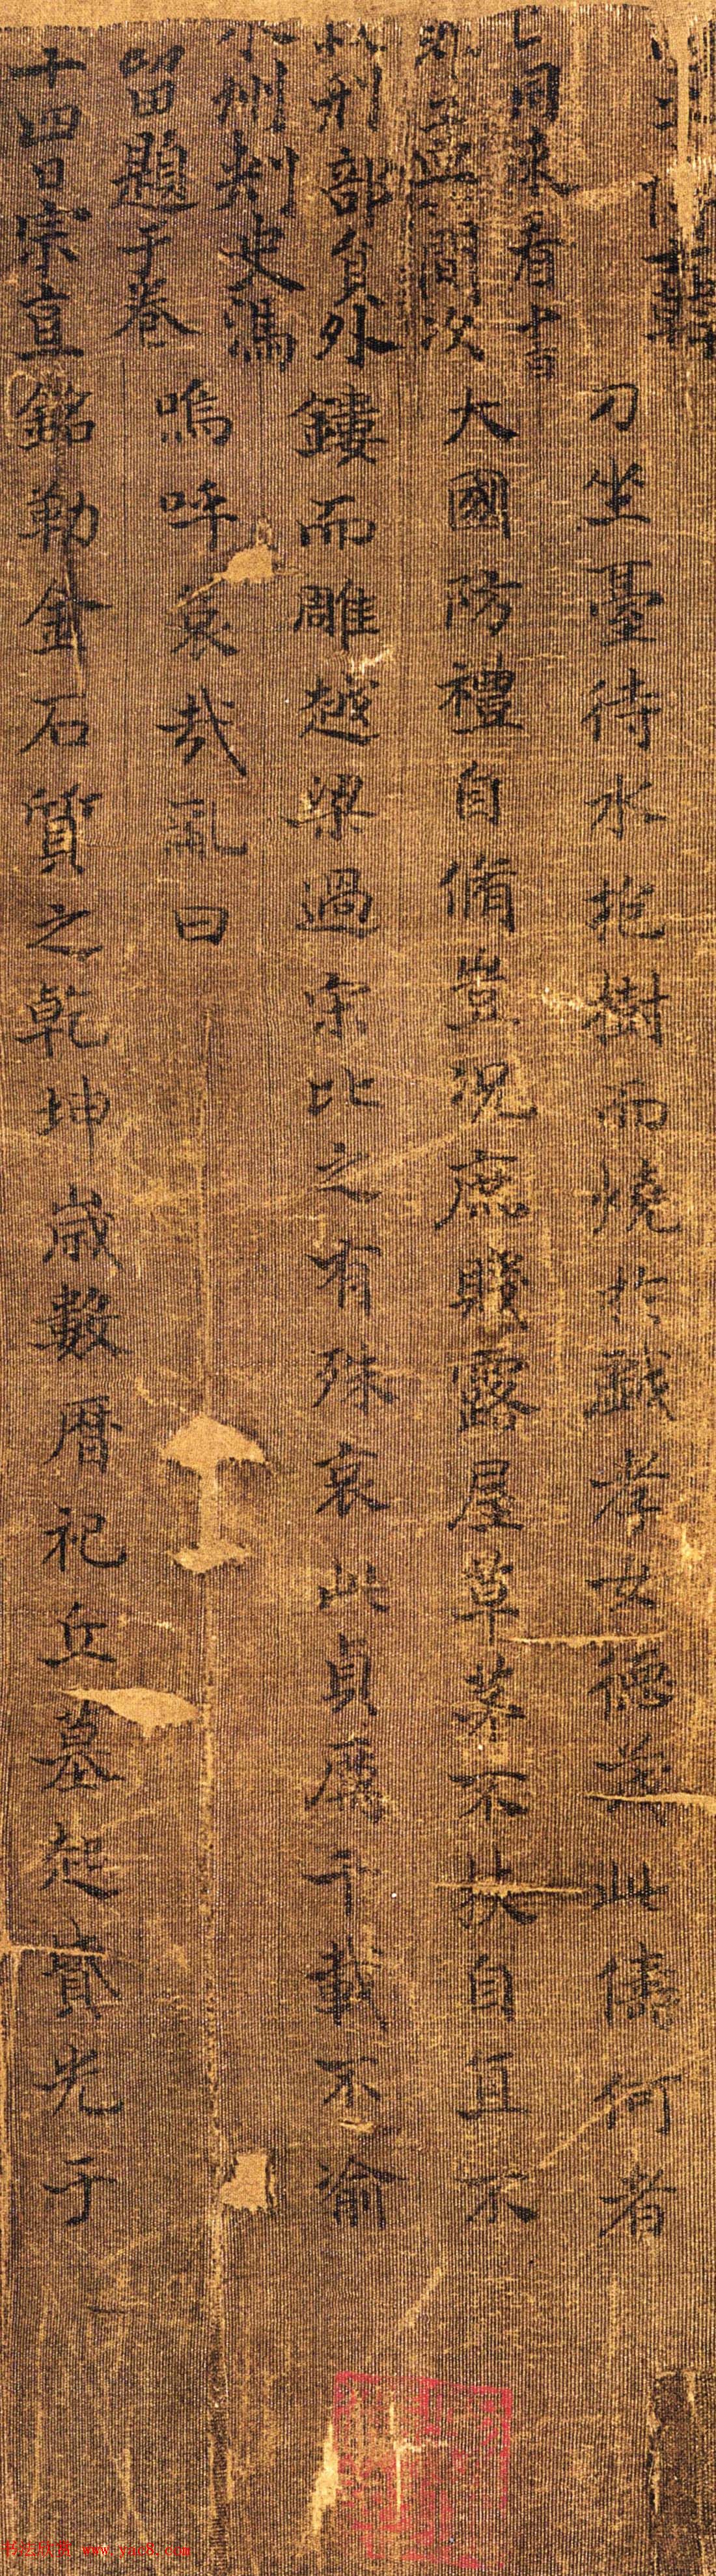 韓
同來看
刀坐臺待水抱樹而燒於戲孝女德茂此儔何者
間次
大國防禮自脩豈況庶賤露屋草茅不扶自直不
刑部員外
鏤而雕越梁過宋比之有殊哀此貞厲千載不渝
州刾史馮
留題于卷
嗚呼哀哉亂曰
十四日宗直
銘勒金石質之乾坤歲數曆祀丘墓起賁光于
书法欣赏 www.yac8.com